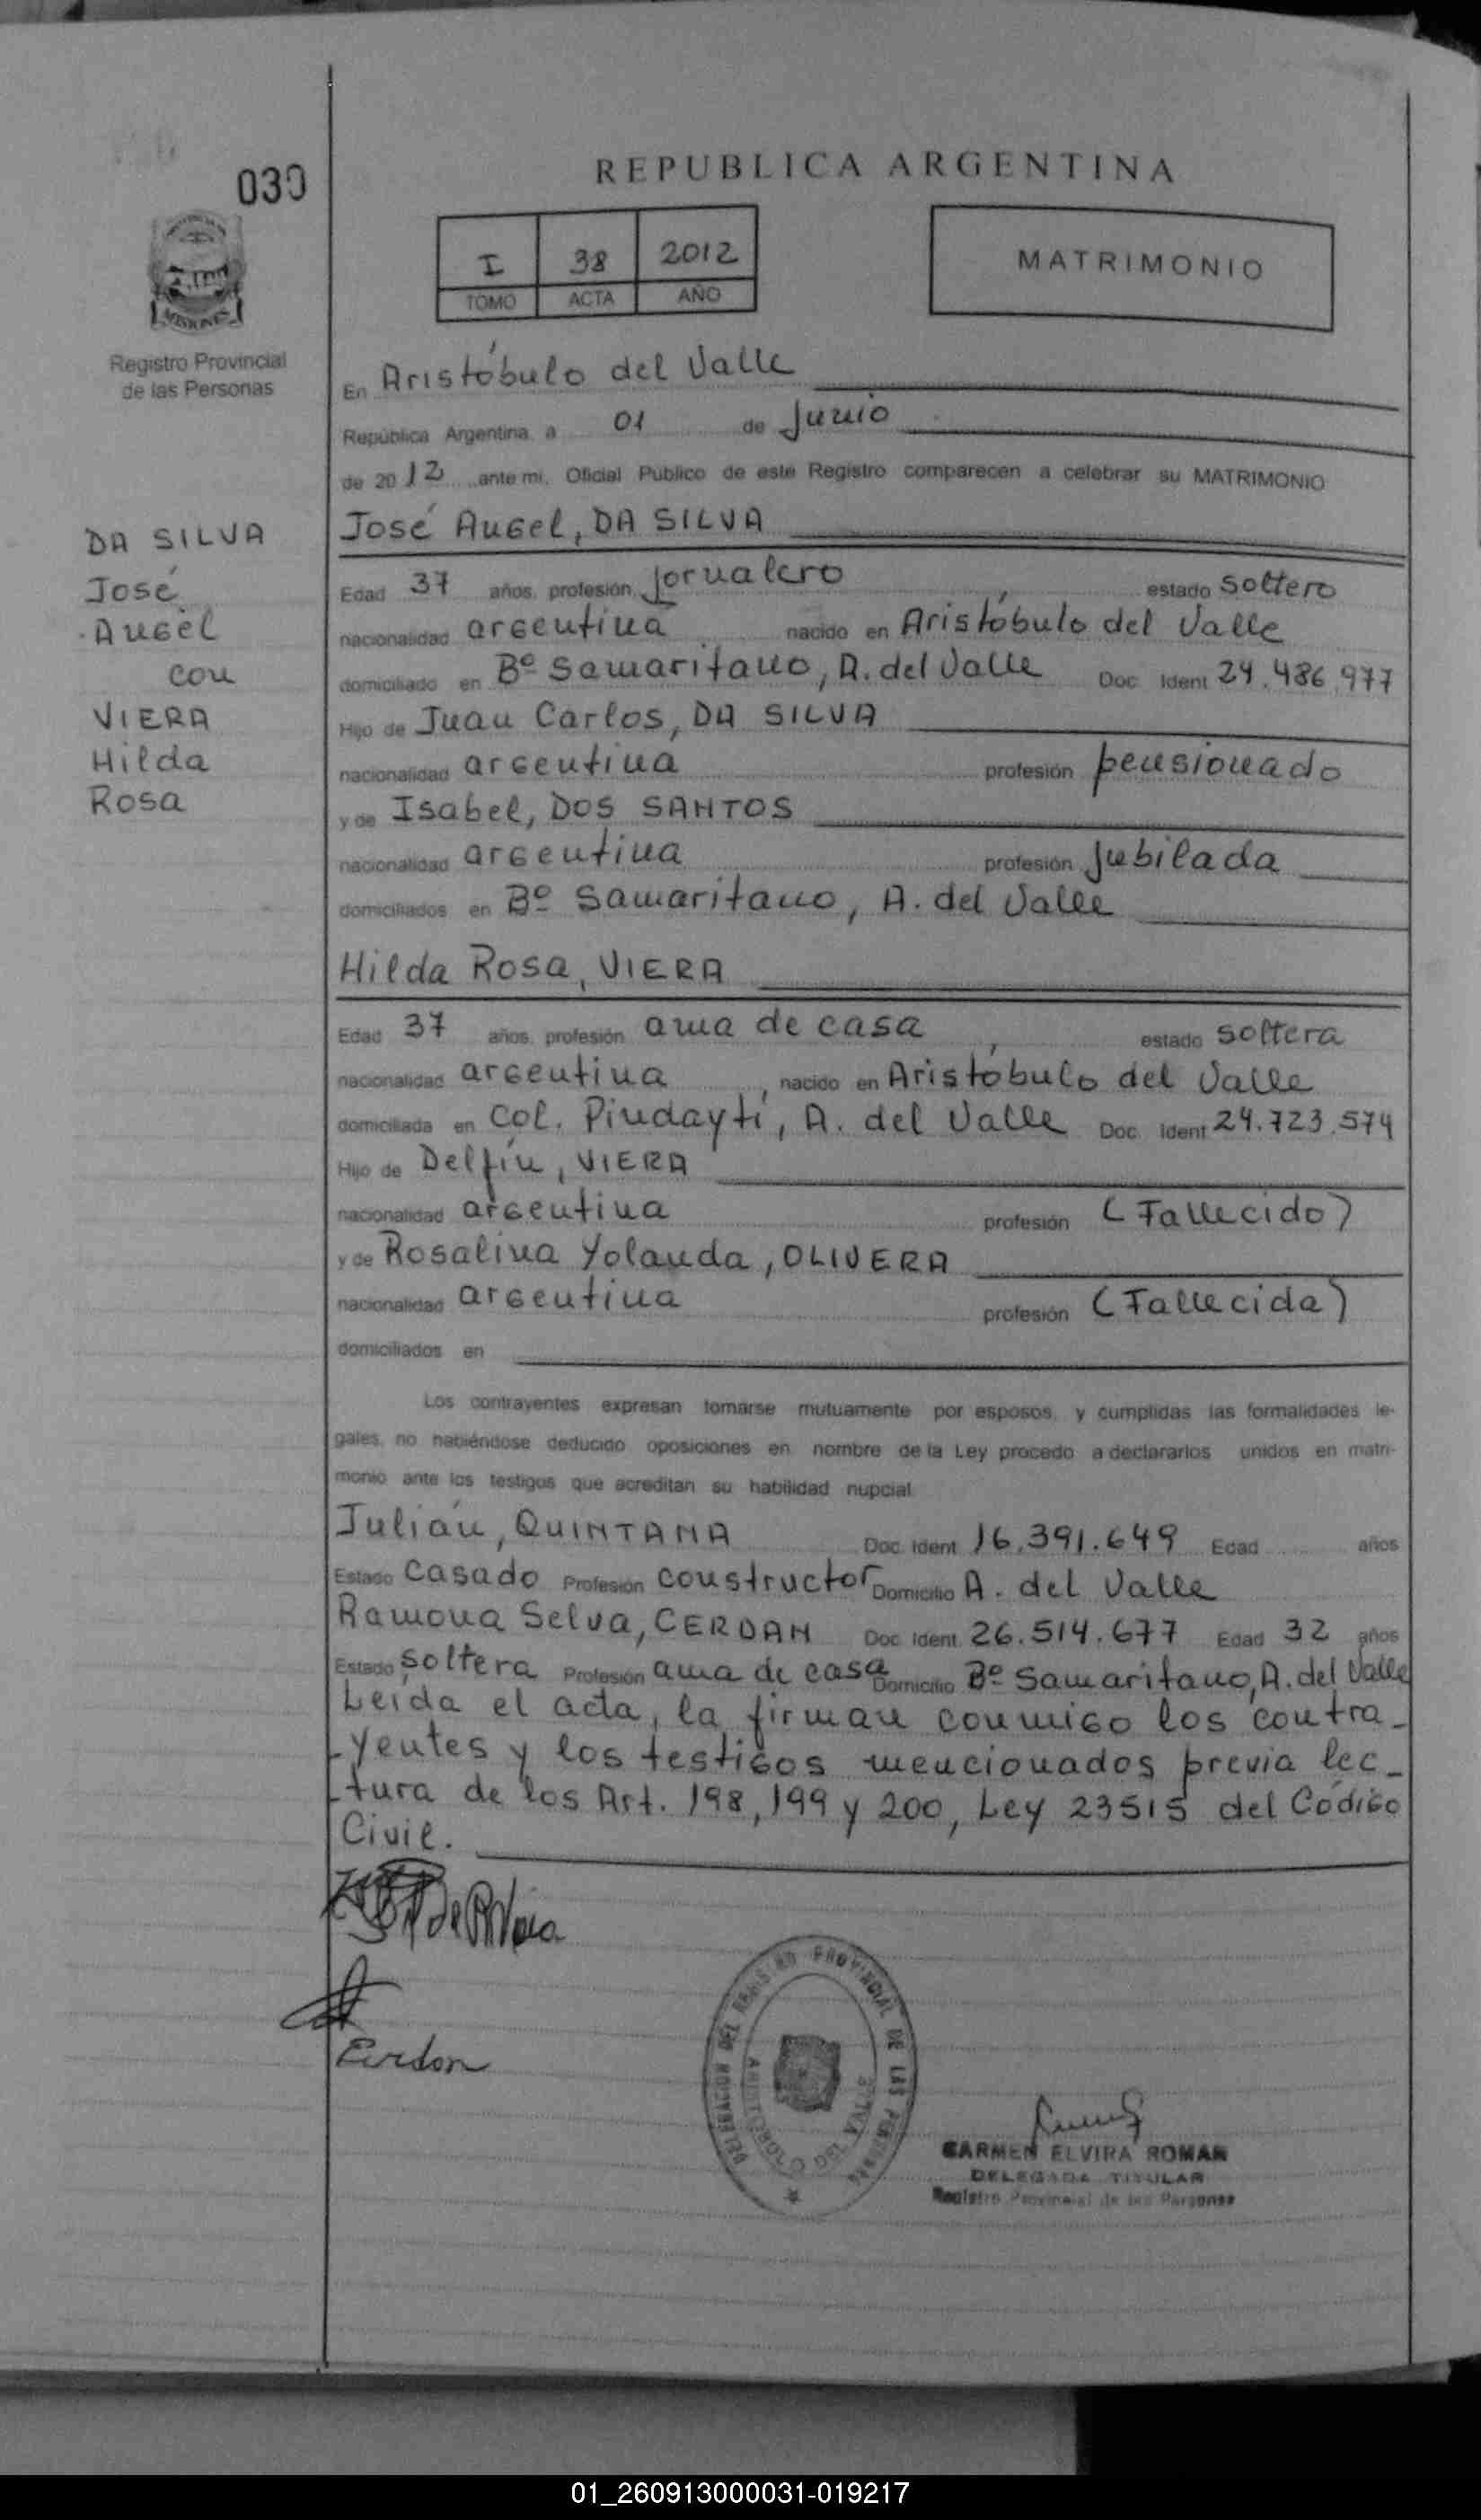 030
REPUBLICA ARGENTINA
I 38 2012
TOMO ACTA AÑO
MATRIMONIO
MISIONES
Registro Provincial
de las Personas
En Aristóbulo del Valle
República Argentina, a 01 de Junio
de 2012 ante mi, Oficial Publico de este Registro comparecen a celebrar su MATRIMONIO
DA SILVA
José
Angel
con
VIERA
Hilda
Rosa
José Angel, DA SILVA
Edad 37 años, profesión jornalero estado soltero
nacionalidad argentina nacido en Aristóbulo del Valle
domiciliado en Bº Samaritano, A. del Valle Doc. Ident 24.486.977
Hijo de Juan Carlos, DA SILVA
nacionalidad argentina profesión pensionado
y de Isabel, DOS SANTOS
nacionalidad argentina profesión jubilada
domiciliados en Bº Samaritano, A. del Valle
Hilda Rosa, VIERA
Edad 37 años, profesión ama de casa estado soltera
nacionalidad argentina, nacido en Aristóbulo del Valle
domiciliada en Col. Pindaytí, A. del Valle Doc. Ident 24.723.574
Hijo de Delfín, VIERA
nacionalidad argentina profesión (Fallecido)
y de Rosalina Yolanda, OLIVERA
nacionalidad argentina profesión (Fallecida)
domiciliados en
Los contrayentes expresan tomarse mutuamente por esposos, y cumplidas las formalidades le-
gales, no habiéndose deducido oposiciones en nombre de la Ley procedo a declararlos unidos en matri-
monio ante los testigos que acreditan su habilidad nupcial
Julián, QUINTANA Doc. Ident 16.391.649 Edad años
Estado Casado Profesión constructor Domicilio A. del Valle
Ramona Selva, CERDAN Doc. Ident. 26.514.677 Edad 32 años
Estado soltera Profesión ama de casa Domicilio Bº Samaritano, A. del Valle
Leída el acta, la firman conmigo los contra-
-yentes y los testigos mencionados previa lec-
-tura de los Art. 198, 199 y 200, Ley 23515 del Código
Civil.
DELEGACION DEL REGISTRO PROVINCIAL DE LAS PERSONAS
CARMEN ELVIRA ROMAN
DELEGADA TITULAR
Registro Provincial de las Personas
01_260913000031-019217